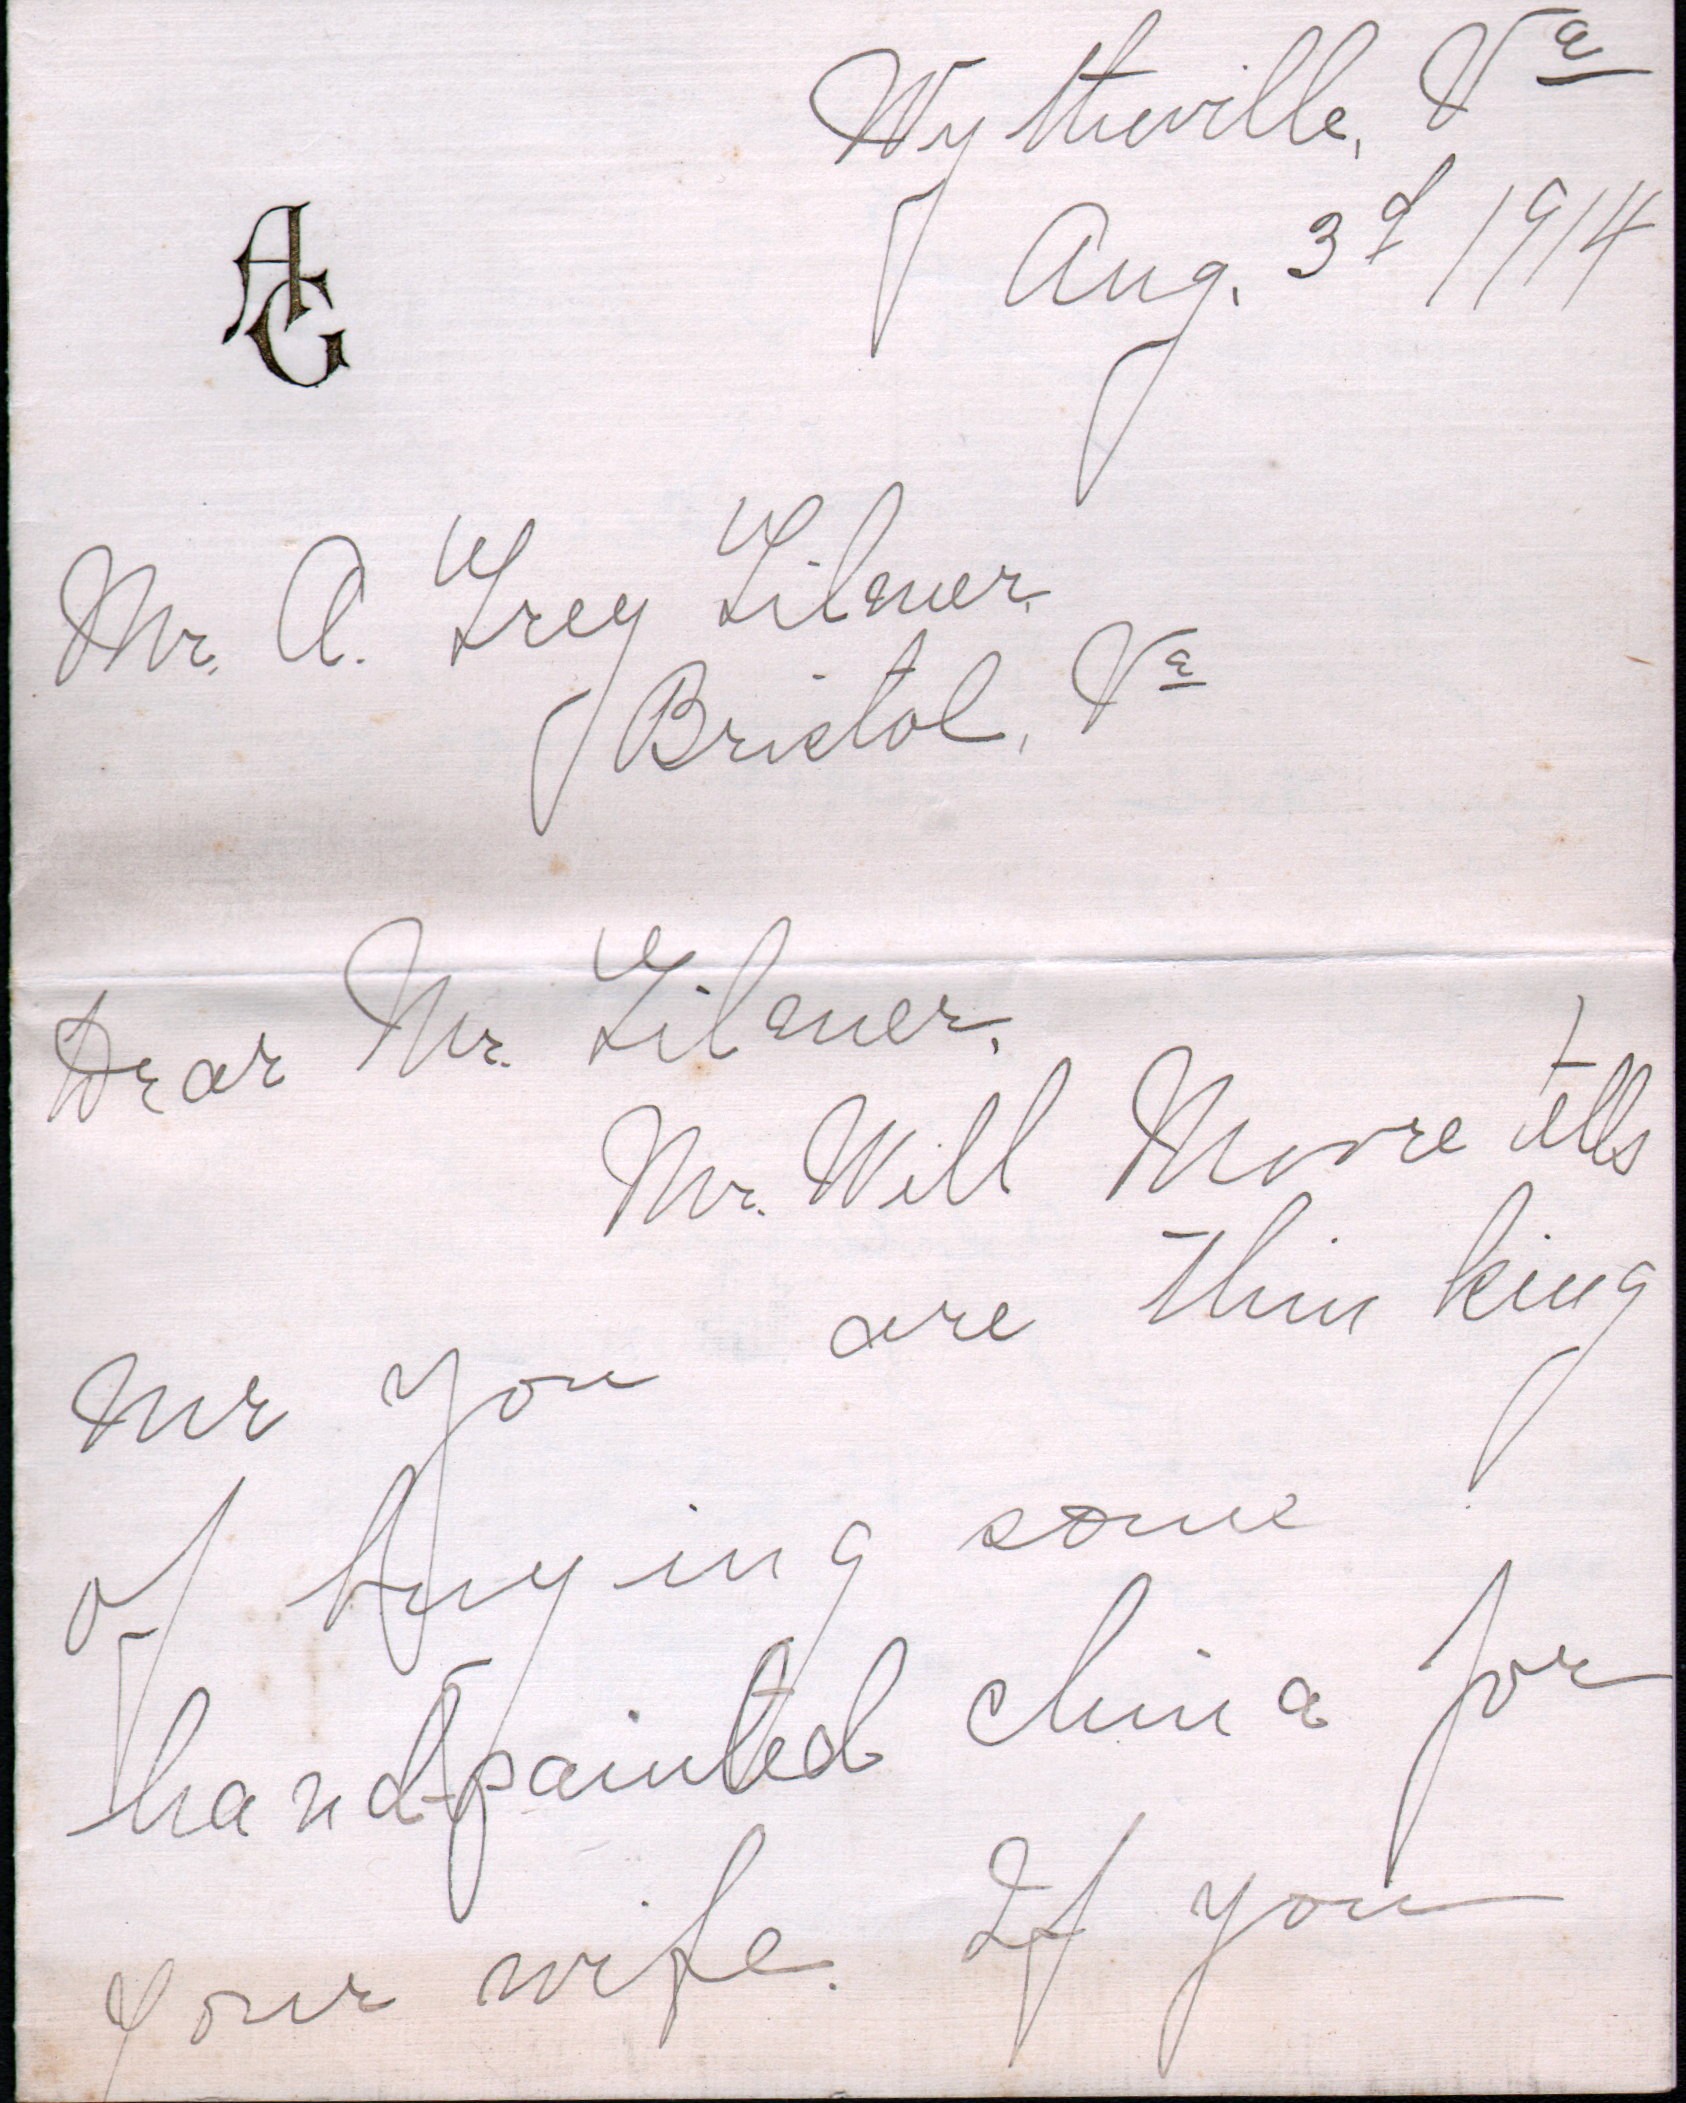 Wytheville, Va
Aug. 3d 1914
AG
Mr. A. Grey Gilmer.
Bristol, Va
Dear Mr. Gilmer,
Mr. Will Moore tells
me you are thinking
of buying some
hand-painted china for
your wife. If you